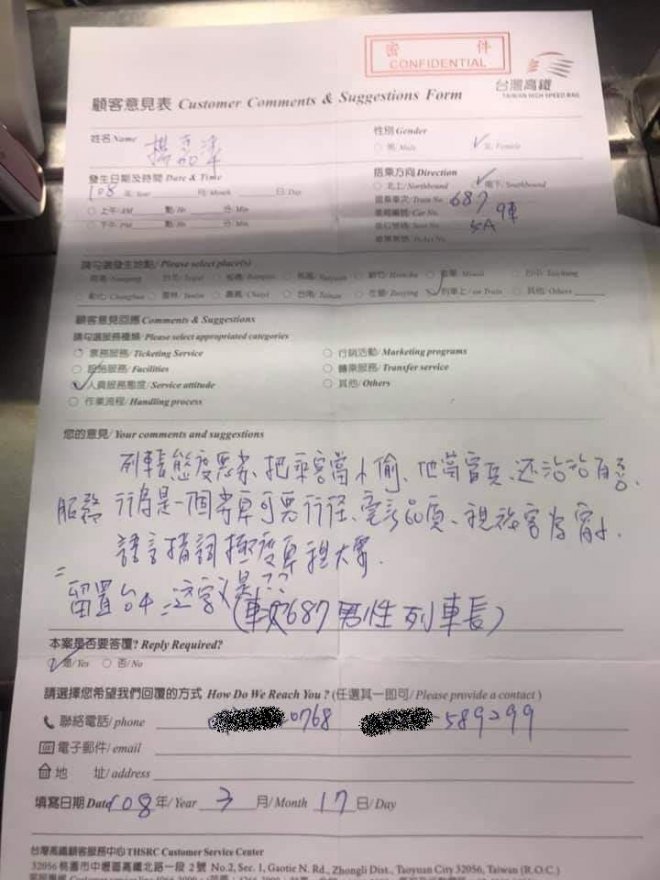 密 件
CONFIDENTIAL
台灣高鐵
TAIWAN HIGH SPEED RAIL
顧客意見表 Customer Comments & Suggestions Form
姓名 Name
性別 Gender
男 Male 女 Female
發生日期及時間 Date & Time
108 年 Year 月/Month 日/Day
上午/AM 點/Hr 分/Min
下午/PM 點/Hr 分/Min
搭乘方向 Direction
北上/Northbound 南下/Southbound
搭乘車次/Train No. 687
車廂編號/Car No. 9車
座位號碼/Seat No. 5A
請勾選發生地點/Please select place(s)
南港/Nangang 台北/Taipei 板橋/Banqiao 桃園/Taoyuan 新竹/Hsinchu 苗栗/Miaoli 台中/Taichung
彰化/Changhua 雲林/Yunlin 嘉義/Chiayi 台南/Tainan 左營/Zuoying 列車上/on Train 其他/Others
顧客意見回應 Comments & Suggestions
請勾選服務種類/Please select appropriated categories
票務服務/Ticketing Service 行銷活動/Marketing programs
設施服務/Facilities 轉乘服務/Transfer service
人員服務態度/Service attitude 其他/Others
作業流程/Handling process
您的意見/Your comments and suggestions
態度惡劣、把乘客當小偷、他當官兵、还沾沾自喜、
服務行為是一個卑可 行径、 品 、視旅客為
語言措詞 度
留置台 = 這字 是??
(車次687男性列車長)
本案是否要答覆? Reply Required?
是/Yes 否/No
請選擇您希望我們回覆的方式 How Do We Reach You ? (任選其一即可/Please provide a contact )
聯絡電話/phone 0768 589299
電子郵件/email
地 址/address
填寫日期 Date 108 年/Year 3 月/Month 17 日/Day
台灣高鐵顧客服務中心 THSRC Customer Service Center
32056 桃園市中壢區高鐵北路一段 2 號 No.2, Sec. 1, Gaotie N. Rd., Zhongli Dist., Taoyuan City 32056, Taiwan (R.O.C.)